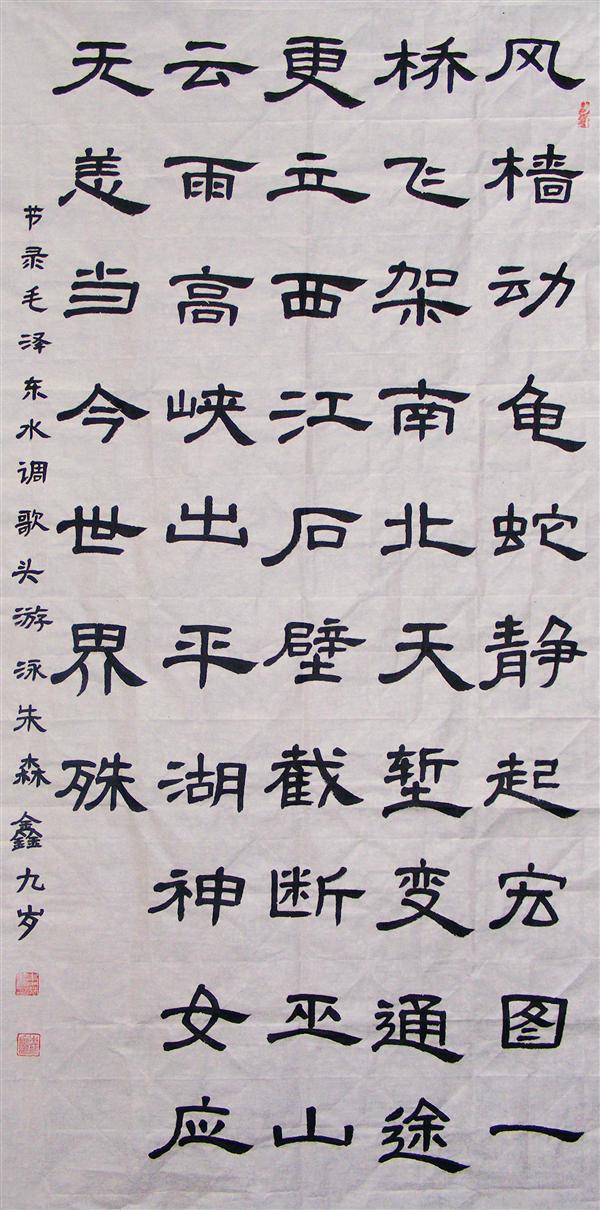 风樯动龟蛇静起宏图一
桥飞架南北天堑变通途
更立西江石壁截断巫山
云雨高峡出平湖神女应
无恙当今世界殊
节录毛泽东水调歌头游泳朱森鑫九岁